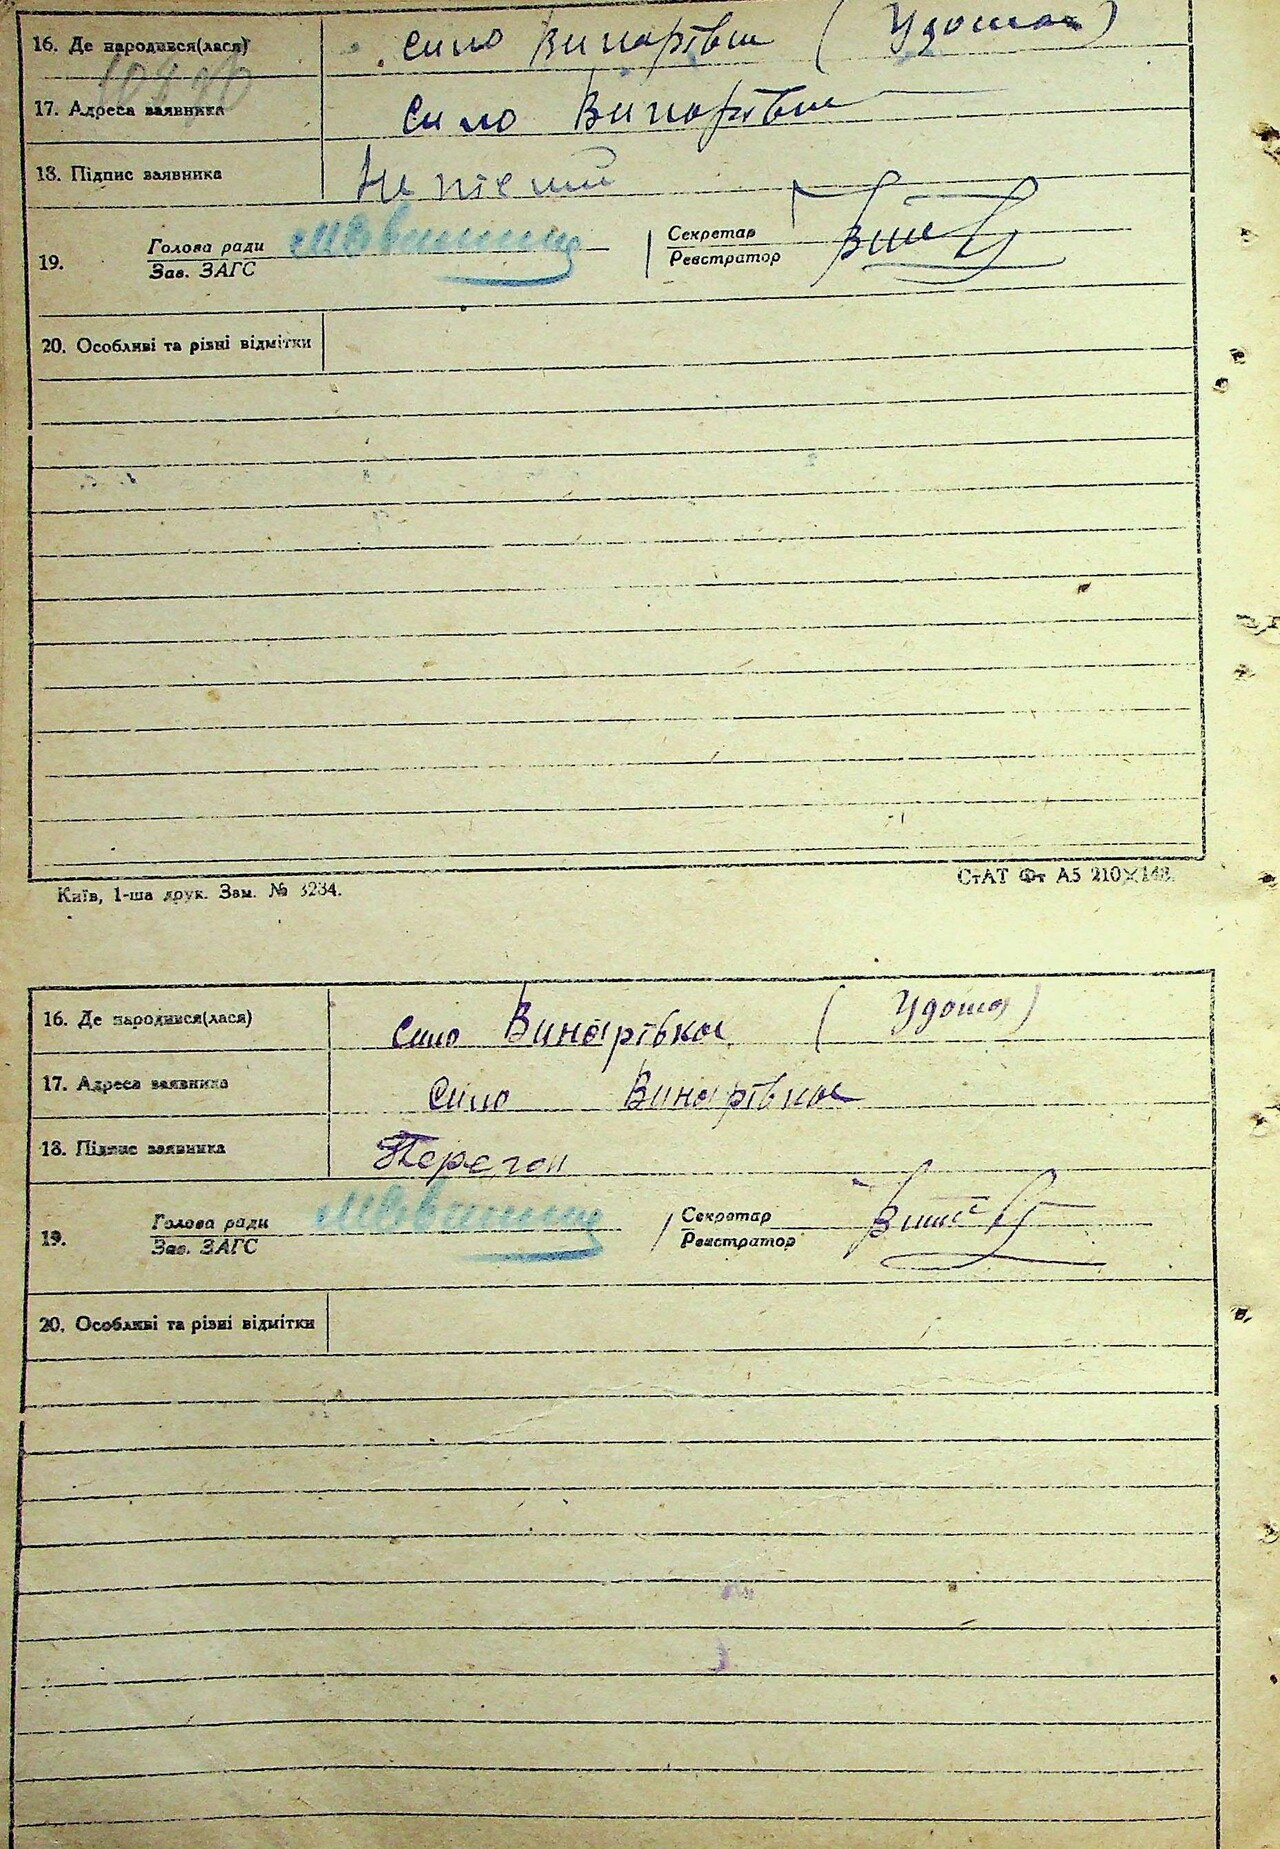 16. Де народився(лася) село Винарівка (Удома)
17. Адреса заявника село Винарівка
18. Підпис заявника Не письм
19. Голова ради Секретар
Зав. ЗАГС Реєстратор
20. Особливі та різні відмітки
Київ, 1-ша друк. Зам. № 3234. СтАТ Фт А5 210×148.
16. Де народився(лася) село Винарівка (Удома)
17. Адреса заявника село Винарівка
18. Підпис заявника Перегон
19. Голова ради Секретар
Зав. ЗАГС Реєстратор
20. Особливі та різні відмітки